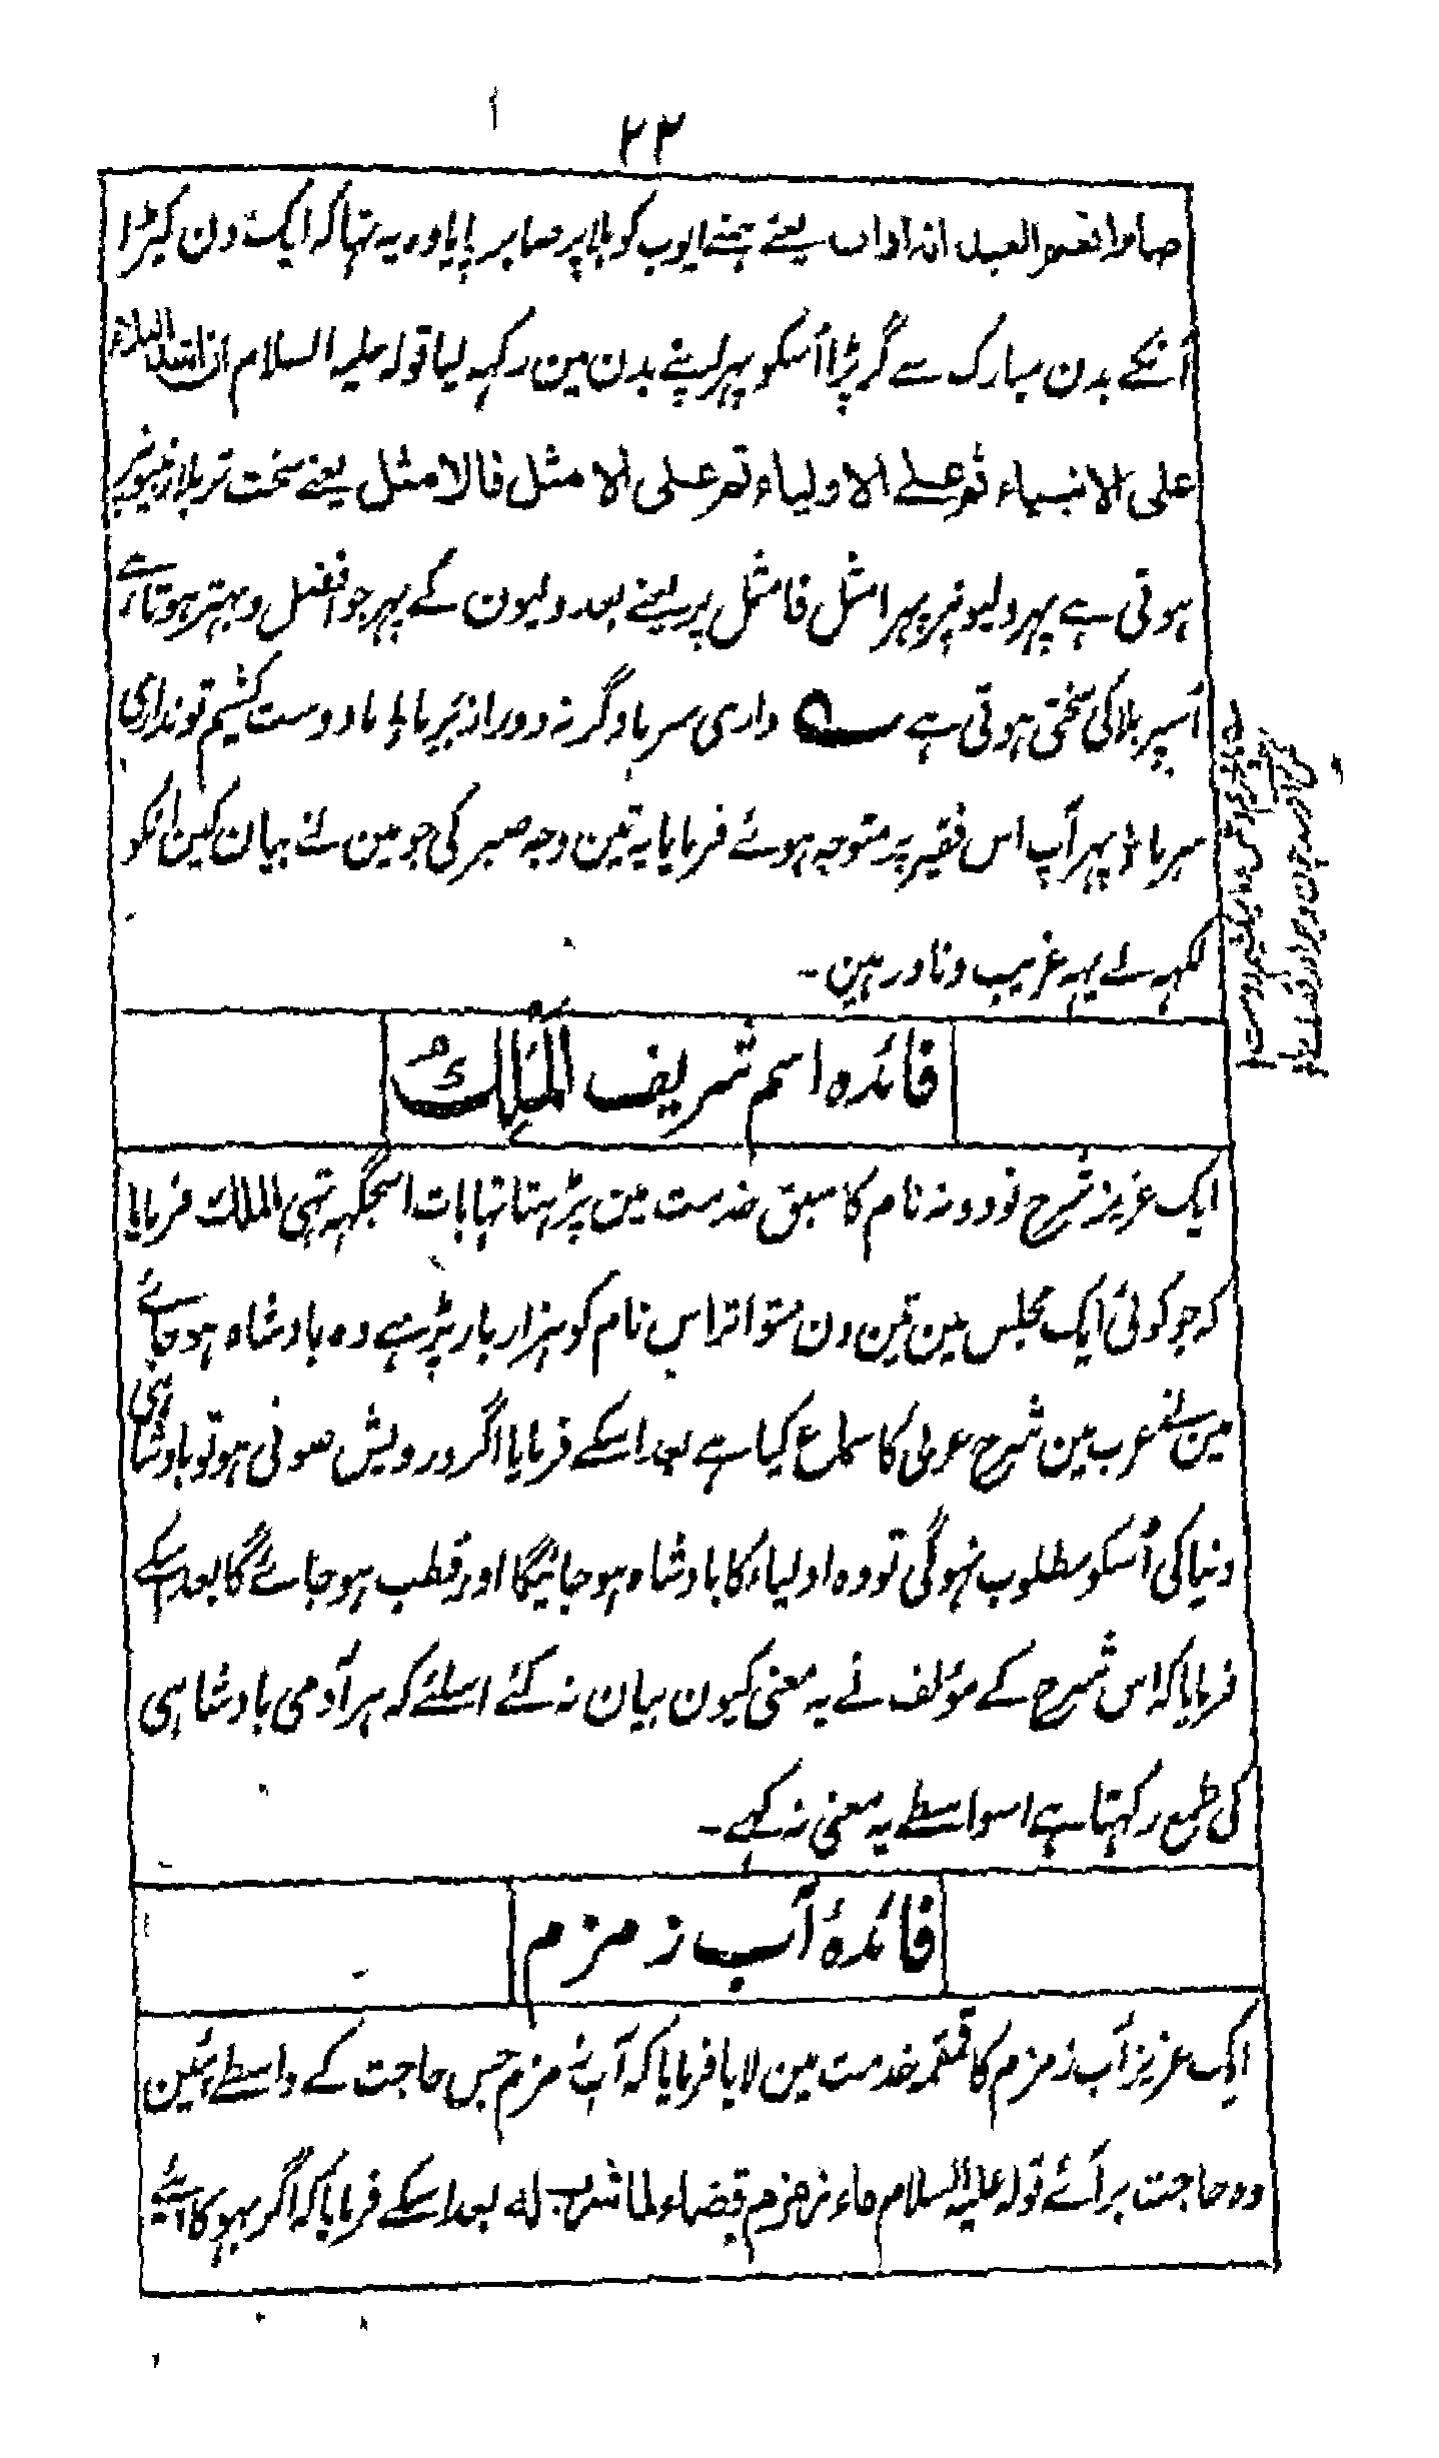 ۲۳
صابرا نعم العبد انہ اواب یعنے ہمنے ایوب کو بلا پر صابر پایا وہ یہ تہا کہ ایک دن کیڑا
اُنکے بدن مبارک سے گر پڑا اُسکو پہر اپنے بدن مین رکہہ لیا قولہ علیہ السلام ان اشد البلاء
علی الانبیاء ثم علے الاولیاء ثم علی الامثل فالامثل یعنے سخت تر بلا نبیونپر
ہوتی ہے پہر ولیونپر پہر امثل فامثل پر یعنے بعد ولیون کے پہر جو افضل و بہتر ہوتا ہے
اُسپر بلا کی سختی ہوتی ہے داری سر ما وگرنہ دور از بر ما ما دوست کشیم تو نداری
سر ما پہر آپ اس فقیر پر متوجہ ہوئے فرمایا یہ تین وجہ صبر کی جو مین نے بیان کین انکو
لکہہ لے یہہ غریب و نادر ہین۔
فائدہ اسم شریف اَلْمَلِكُ
ایک عزیز شرح نود و نہ نام کا سبق خدمت مین پڑہتا تہا بات اسجگہہ تہی الملك فرمایا
کہ جو کوئی ایک مجلس مین تین دن متواتر اس نام کو ہزار بار پڑہے وہ بادشاہ ہو جائے
مین نے عرب مین شرح عربی کا سماع کیا ہے بعد اسکے فرمایا اگر درویش صوفی ہو تو بادشاہی
دنیا کی اُسکو مطلوب نہوگی تو وہ اولیاء کا بادشاہ ہو جائیگا اور قطب ہو جائے گا بعد اسکے
فرمایا کہ اس شرح کے مؤلف نے یہ معنی کیون بیان نہ کئے اسلئے کہ ہر آدمی بادشاہی
کی طمع رکہتا ہے اسواسطے یہ معنی نہ کہے۔
فائدۂ آب زمزم
ایک عزیز آب زمزم کا قمقمہ خدمت مین لایا فرمایا کہ آب زمزم جس حاجت کے واسطے پئین
وہ حاجت برآئے قولہ علیہ السلام ماء زمزم قضاء لما شرب له بعد اسکے فرمایا کہ اگر بہوکا پئے